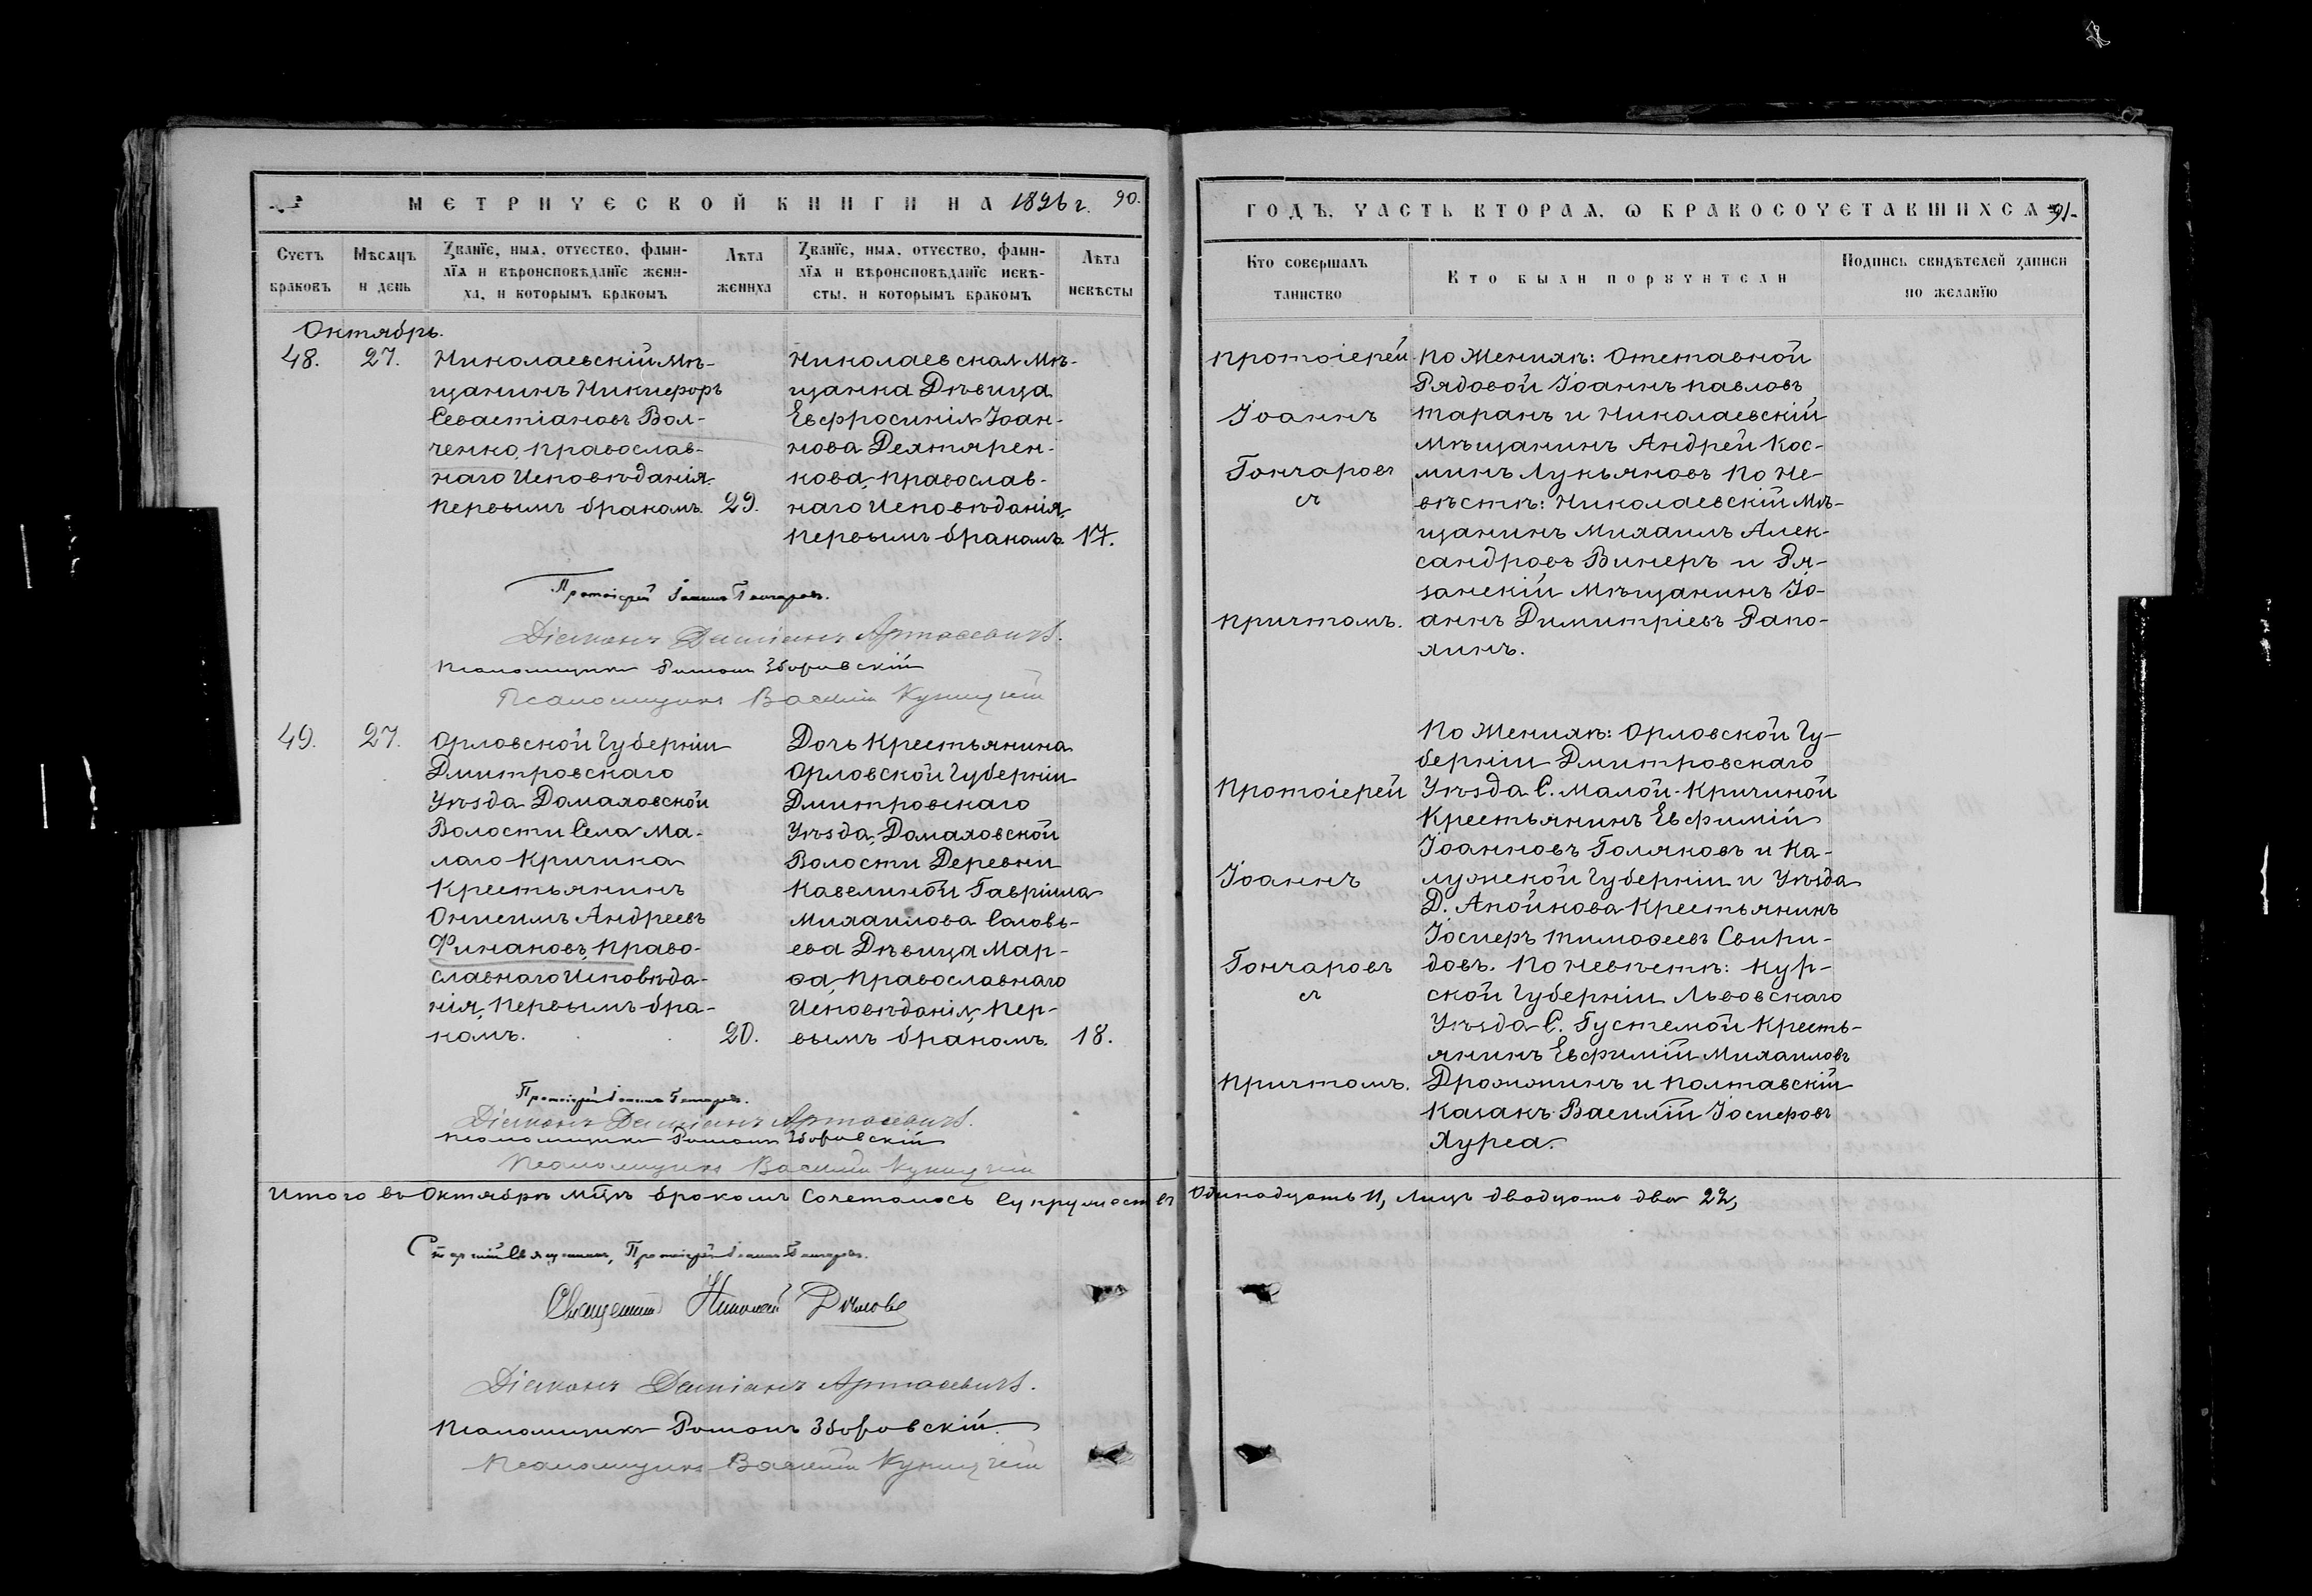 МЕТРИЧЕСКОЙ КНИГИ НА 1896 г. 90.
Счетъ браковъ
Мѣсяцъ и день
Званїе, имя, отчество, фамилїя и вѣроисповѣданїе жениха, и которымъ бракомъ
Лѣта жениха
Званїе, имя, отчество, фамилїя и вѣроисповѣданїе невѣсты, и которымъ бракомъ
Лѣта невѣсты
Октябрь.
48. 27.
Николаевскій Мѣ-
щанинъ Никифоръ
Севастіановъ Вол-
ченко, православ-
наго Исповѣданія
первымъ бракомъ. 29.
Николаевская Мѣ-
щанка Дѣвица
Евфросинія Іоан-
нова Дехтярен-
кова, православ-
наго Исповѣданія,
первымъ бракомъ. 17.
Протоіерей Іоаннъ Гончаровъ.
Діаконъ Даміанъ Артасевичъ.
Псаломщикъ Романъ Зборовскій
Псаломщикъ Василій Куницкій
49. 27.
Орловской Губерніи
Дмитровскаго
Уѣзда Домаховской
Волости Села Ма-
лаго Кричина
Крестьянинъ
Онисимъ Андреевъ
Финановъ, Право-
славнаго Исповѣда-
нія, Первымъ бра-
комъ. 20.
Дочь Крестьянина
Орловской Губерніи
Дмитровскаго
Уѣзда, Домаховской
Волости Деревни
Кавелиной Гавріила
Михаилова Саловь-
ева Дѣвица Мар-
ѳа, Православнаго
Исповѣданія, Пер-
вымъ бракомъ. 18.
Протоіерей Іоаннъ Гончаровъ.
Діаконъ Даміанъ Артасевичъ.
Псаломщикъ Романъ Зборовскій
Псаломщикъ Василій Куницкій
Итого въ Октябрѣ мцѣ бракомъ сочеталось супружествъ
Старшій Священникъ, Протоіерей Іоаннъ Гончаровъ.
Священникъ Николай
Діаконъ Даміанъ Артасевичъ.
Псаломщикъ Романъ Зборовскій.
Псаломщикъ Василій Куницкій
ГОДЪ, ЧАСТЬ ВТОРАЯ, Ѡ БРАКОСОЧЕТАВШИХСЯ 91.
Кто совершалъ таинство
Кто были порȢчители
Подпись свидѣтелей записи по желанїю
Протоіерей
Іоаннъ
Гончаровъ
съ
причтомъ.
По Женихѣ: Отставной
Рядовой Іоаннъ Павловъ
Таранъ и Николаевскій
Мѣщанинъ Андрей Кос-
минъ Лукьяновъ По Не-
вѣстѣ: Николаевскій Мѣ-
щанинъ Михаилъ Алек-
сандровъ Винеръ и Ря-
занскій Мѣщанинъ Іо-
аннъ Димитріевъ Рапо-
хинъ.
Протоіерей
Іоаннъ
Гончаровъ
съ
причтомъ.
По Женихѣ: Орловской Гу-
берніи Дмитровскаго
Уѣзда С. Малой-Кричиной
Крестьянинъ Евфимій
Іоанновъ Голяковъ и Ка-
лужской Губерніи и Уѣзда
Д. Апойкова Крестьянинъ
Іосифъ Тимоѳеевъ Свири-
довъ. По невѣстѣ: Кур-
ской Губерніи Львовскаго
Уѣзда С. Густемой Кресть-
янинъ Евфимій Михаиловъ
Дрожжинъ и Полтавскій
Казакъ Василій Іосифовъ
Хурса.
Одинадцать 11, лицъ двадцать два 22,